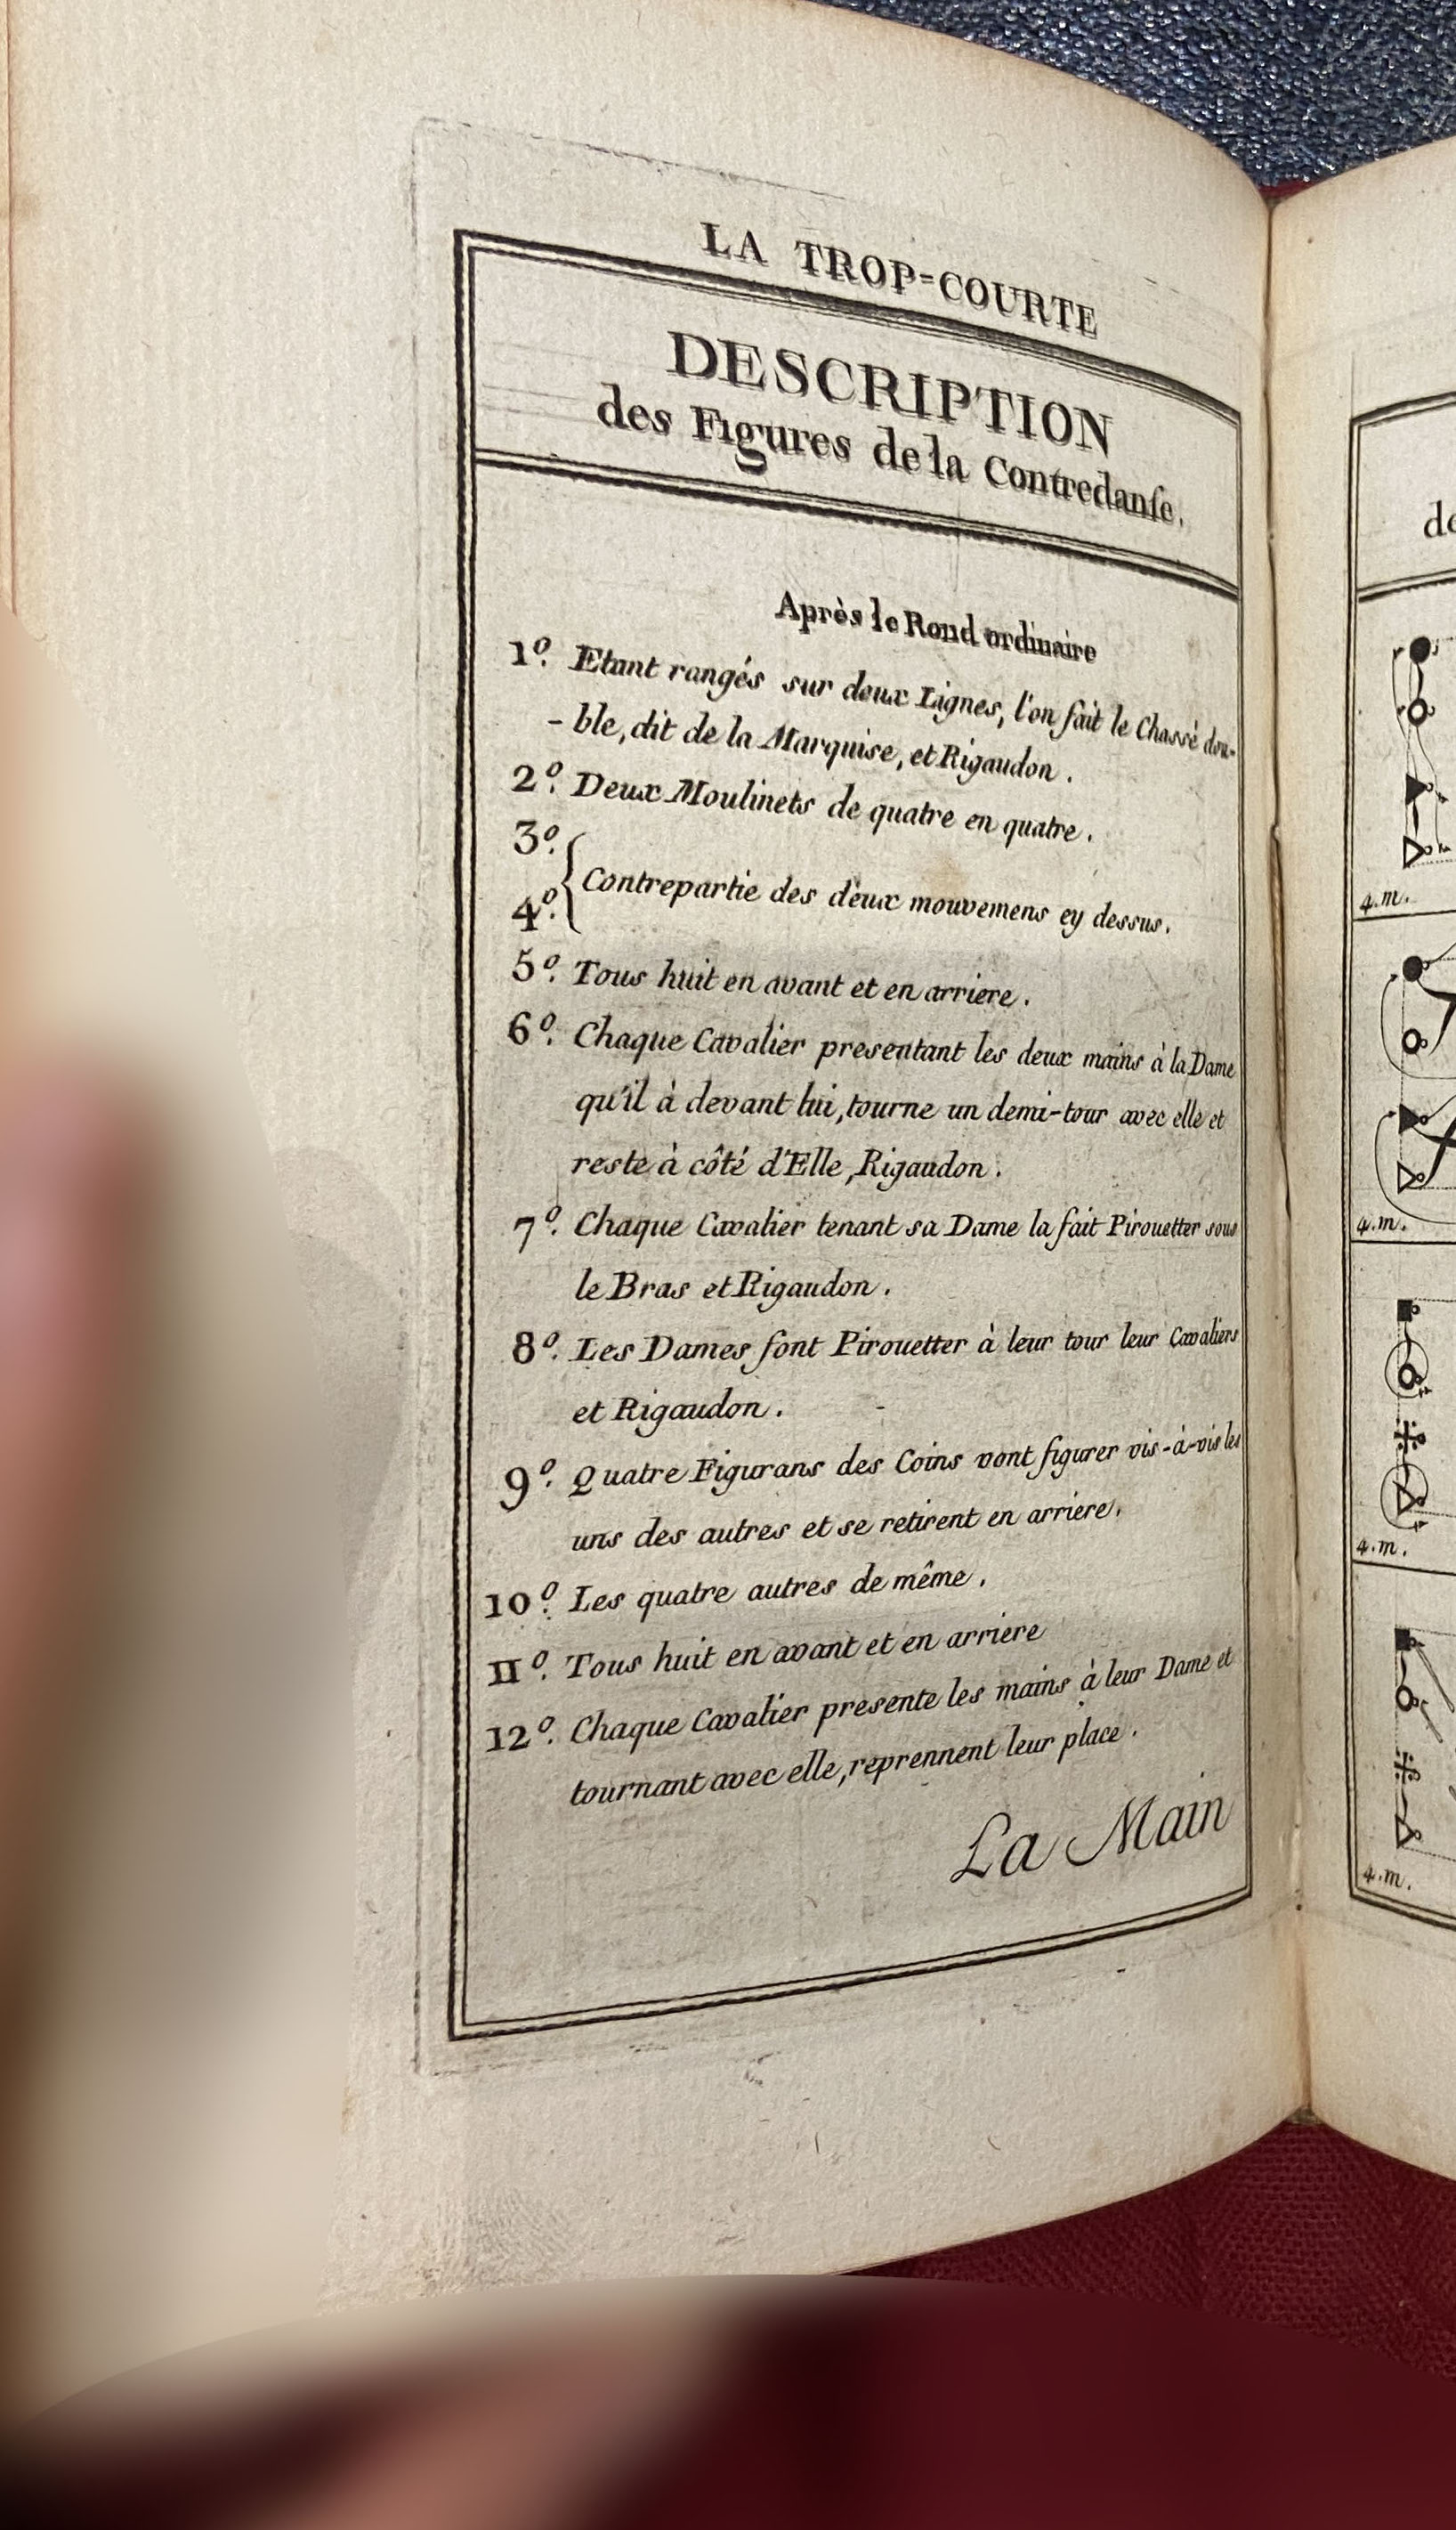 LA TROP=COURTE
DESCRIPTION
des Figures de la Contredanſe.
Après le Rond ordinaire
1º. Etant rangés sur deux Lignes, l'on fait le Chassé dou-
- ble, dit de la Marquise, et Rigaudon.
2º. Deux Moulinets de quatre en quatre.
3º.
4º. { Contrepartie des deux mouvemens cy dessus.
5º. Tous huit en avant et en arriere.
6º. Chaque Cavalier presentant les deux mains à la Dame
qu'il à devant lui, tourne un demi-tour avec elle et
reste à côté d'Elle, Rigaudon.
7º. Chaque Cavalier tenant sa Dame la fait Pirouetter sous
le Bras et Rigaudon.
8º. Les Dames font Pirouetter à leur tour leur Cavaliers
et Rigaudon.
9º. Quatre Figurans des Coins vont figurer vis-à-vis les
uns des autres et se retirent en arriere.
10º. Les quatre autres de même.
11º. Tous huit en avant et en arriere
12º. Chaque Cavalier presente les mains à leur Dame et
tournant avec elle, reprennent leur place.
La Main
4.m.
4.m.
4.m.
4.m.